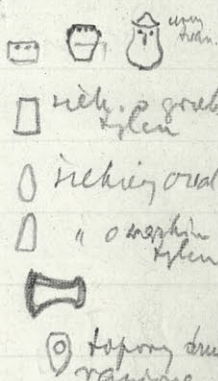 urny
twarz.
siek. o grub
tylcu
siekiery owal
" o wąskim
tylcu
topory